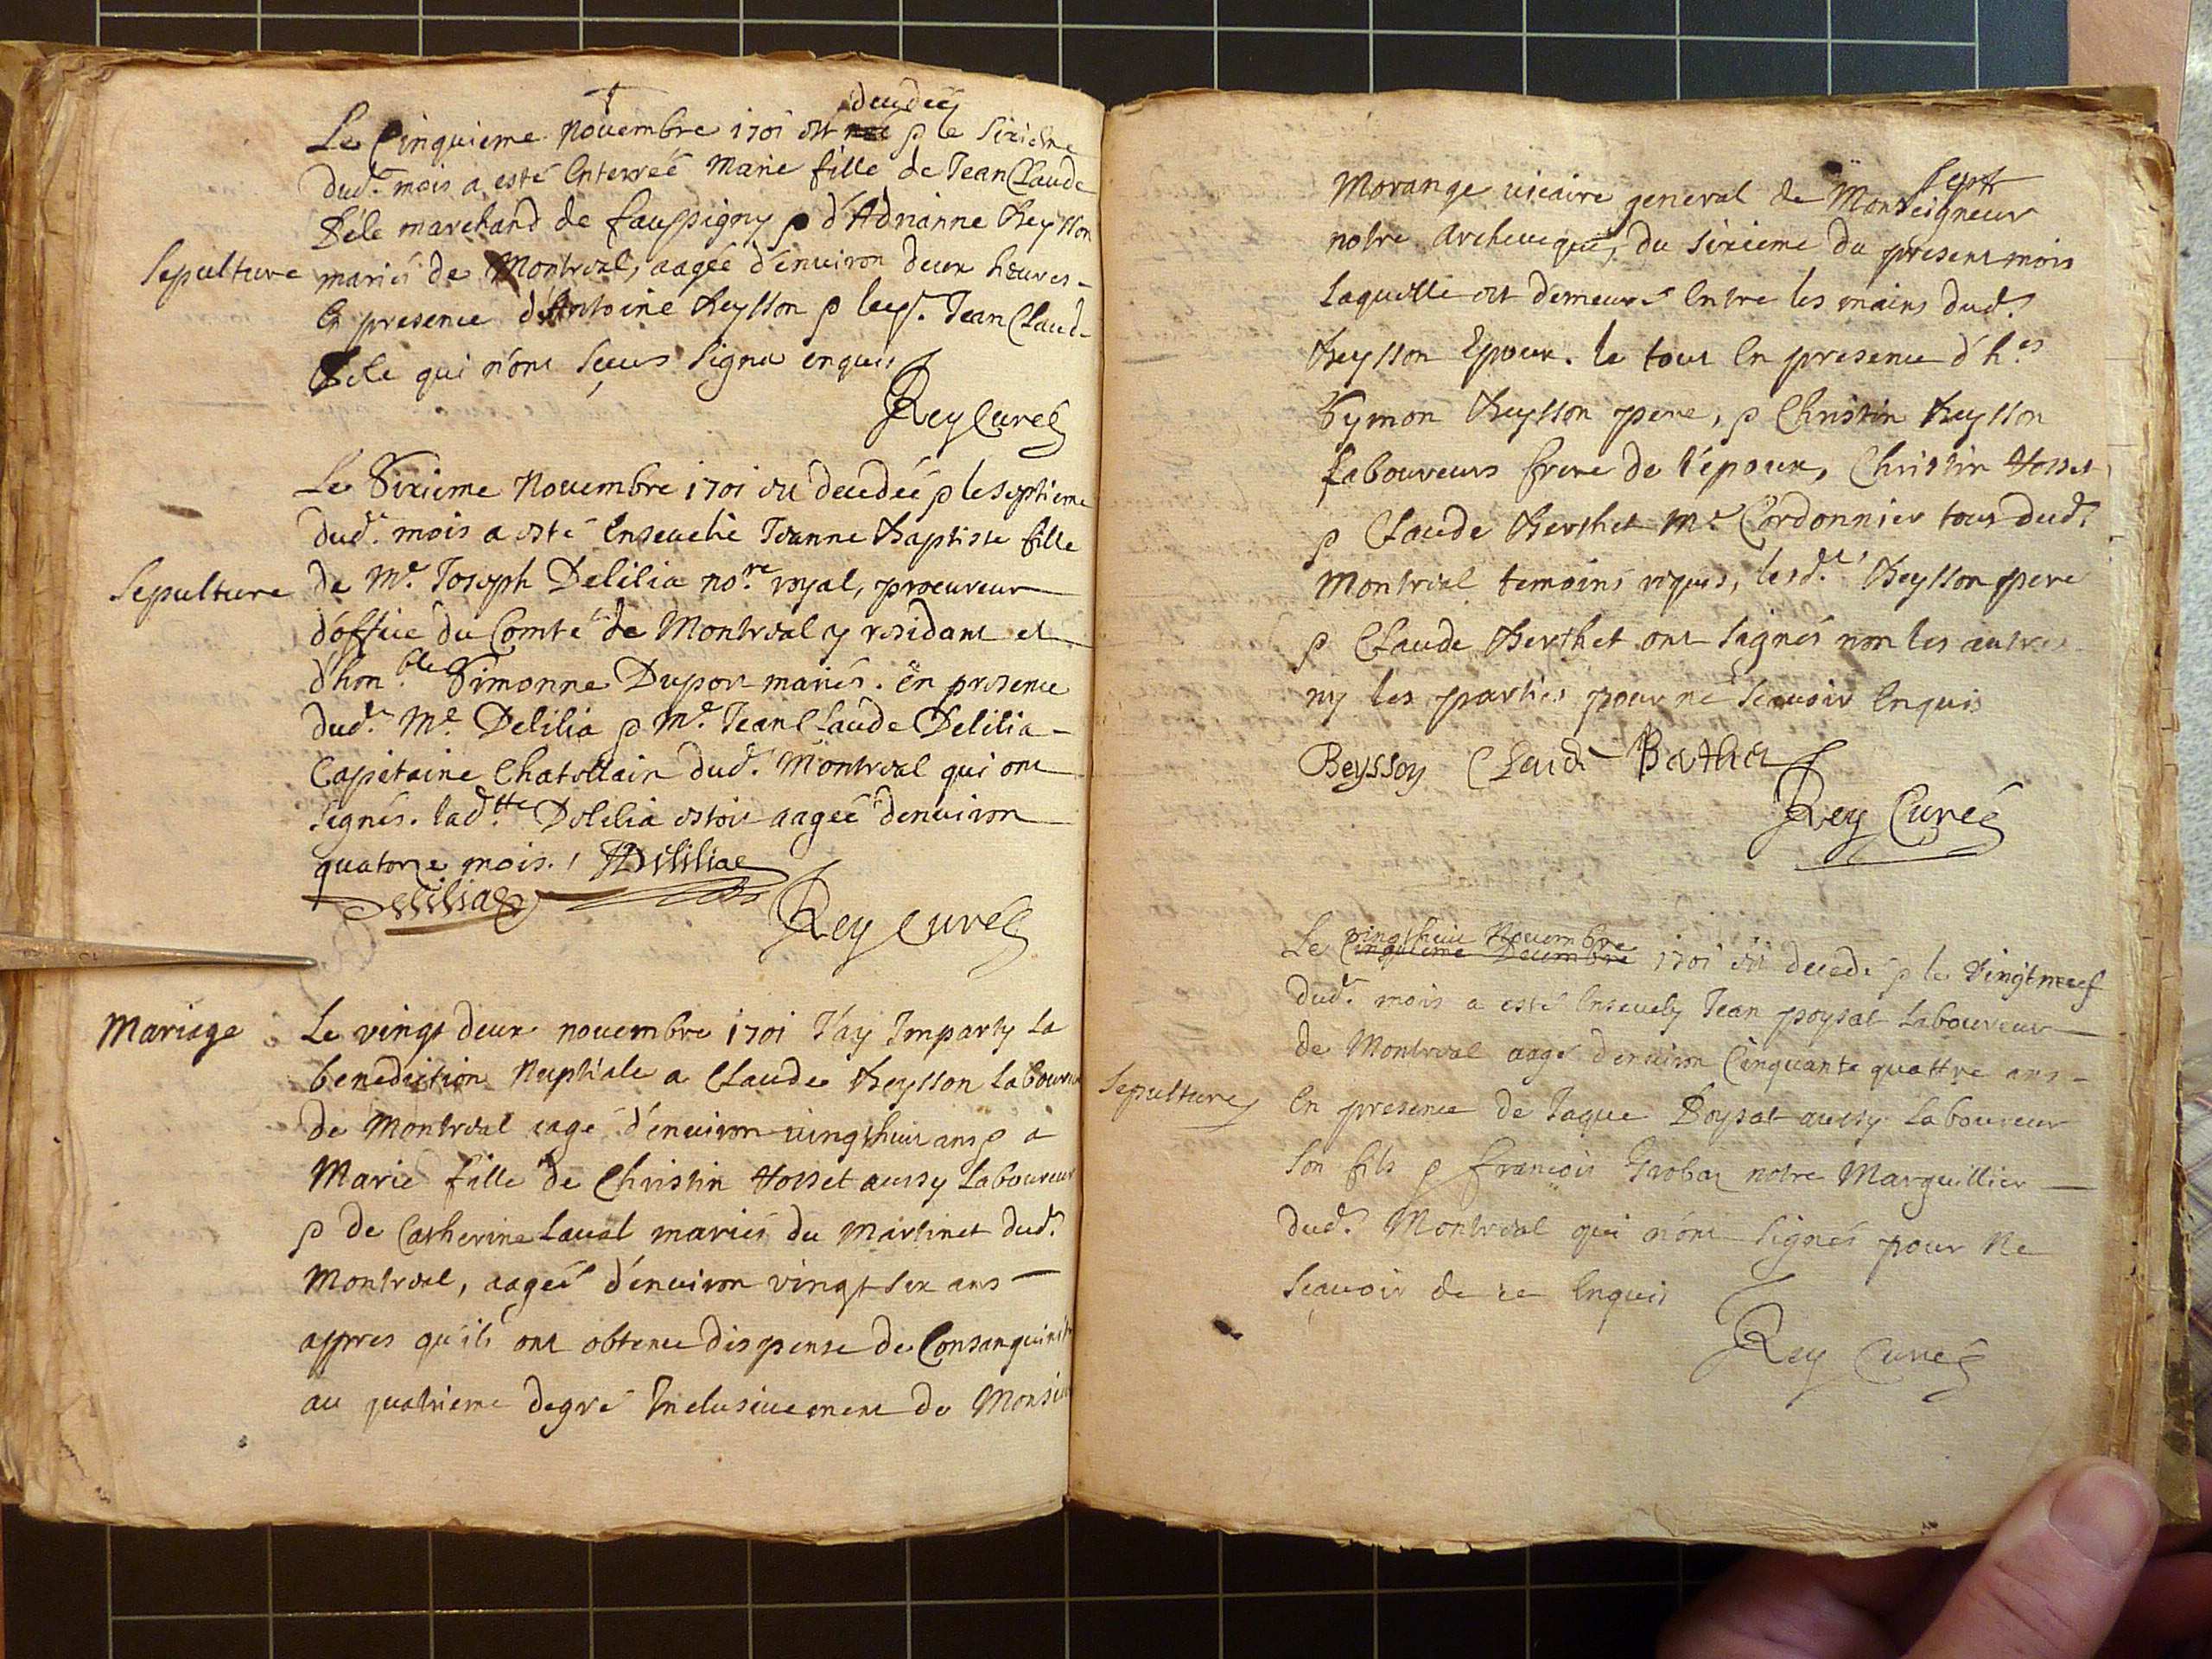 decedeé
Le Cinquieme Novembre 1701 est neé & le sixième
dud.t mois a esté Enterreé Marie fille de Jean Claude
marchand de faussigny & d'Adrianne Beysson
Sepulture
mariés de Montreal, aageé d'environ deux heures -
En presence d'Antoine Beysson & Jean Claude
qui n'ont sçeus signer enquis
Rey Curé
Le Sixieme Novembre 1701 est decedeé & le septieme
dud.t mois a esté Ensevelie Jeanne Baptiste fille
Sepulture
de M.e Joseph Delilia no.re royal, procureur
d'office du Comté de Montreal y residant et
d'hon.ble Simonne Dupont mariés. En presence
dud.t M.e Delilia & M.e Jean Claude Delilia -
Capitaine Chatellain dud.t Montreal qui ont
signés. lad.tte Delilia estoit aageé denviron
quatorze mois. / Deliliae
Deliliae
Rey Curé
Mariage
Le vingt deux novembre 1701 J'ay Imparty La
benediction Nuptiale a Claude Beysson Laboureur
de Montreal aagé d'environ vingthuit ans & a
Marie fille de Christin Hosset aussy Laboureur
& de Catherine Laval mariés du Martinet dud.t
Montreal, aageé d'environ vingt six ans
appres qu'ils ont obtenu dispense de Consanguinité
au quatrieme degré Inclusivement de Monsieur
Morange vicaire general de Monseigneur
notre Archeveque, du sixieme du present mois
Laquelle est demeureé Entre les mains dud.t
Beysson Epoux. le tout En presence d'h.es
Symon Beysson pere, & Christin Beysson
Laboureurs frere de l'époux, Christin Hosset
& Claude Berthet M.e Cordonnier tous dud.t
Montreal temoins requis, lesd.ts Beysson pere
& Claude Berthet ont signés non les autres
ny les parties pour ne sçavoir Enquis
Beysson Claude Bertha
Rey Curé
vingthuit Novembre
Le Cinquieme Decembre 1701 est decedé & le vingt neuf
dud.t mois a esté Ensevely Jean poysat Laboureur
de Montreal aagé d'environ Cinquante quattre ans -
Sepulture
En presence de Jaque Poysat aussy Laboureur
son fils & françois Grobas notre Marguillier
dud.t Montreal qui n'ont signés pour Ne
sçavoir de ce Enquis
Rey Curé